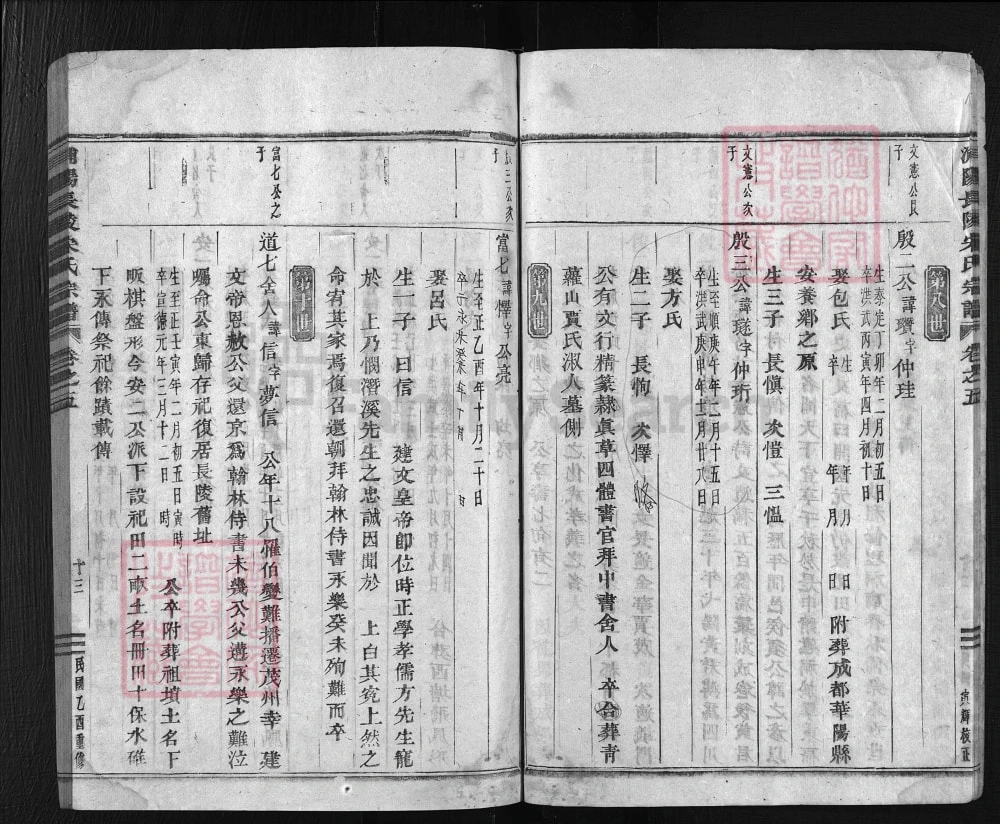 浦陽長陵宋氏宗譜 卷之五
寅輝校正
第八世
文憲公長子
殷二公諱瓚字仲珪
生泰定丁卯年二月初五日
卒洪武丙寅年四月初十日
娶包氏 生 年 月 日
卒 年 月 日
附葬成都華陽縣
安養鄉之原
生三子 長慎 次愷 三愠
文憲公次子
殷三公諱璲字仲珩
生至順庚午年二月十五日
卒洪武庚申年十二月廿八日
娶方氏
生二子 長恂 次懌
公有文行精篆隸真草四體書官拜中書舍人 卒合葬青
蘿山賈氏淑人墓側
第九世
殷三公次子
富七諱懌字公亮
生至正乙酉年十月二十日
卒于永樂癸未年 月 日
娶呂氏
生一子 曰信 建文皇帝即位時正學孝儒方先生寵
於 上乃憫潛溪先生之忠誠因聞於 上白其冤上然之
命宥其家爲復召還朝拜翰林侍書永樂癸未殉難而卒
第十世
富七公之子
道七舍人諱信字夢信 公年十八罹伯變難播遷茂州幸 建
文帝恩赦公父還京爲翰林侍書未幾公父遘永樂之難泣
囑命公東歸存祀復居長陵舊址
生至正壬寅年二月初五日寅時
卒宣德元年三月十二日 時
公卒附葬祖墳土名下
畈棋盤形今安二公派下設祀田二畝土名冊田十保水碓
下永傳祭祀餘蹟載傳
浦陽長陵宋氏宗譜 卷之五
十三
民國乙酉重修